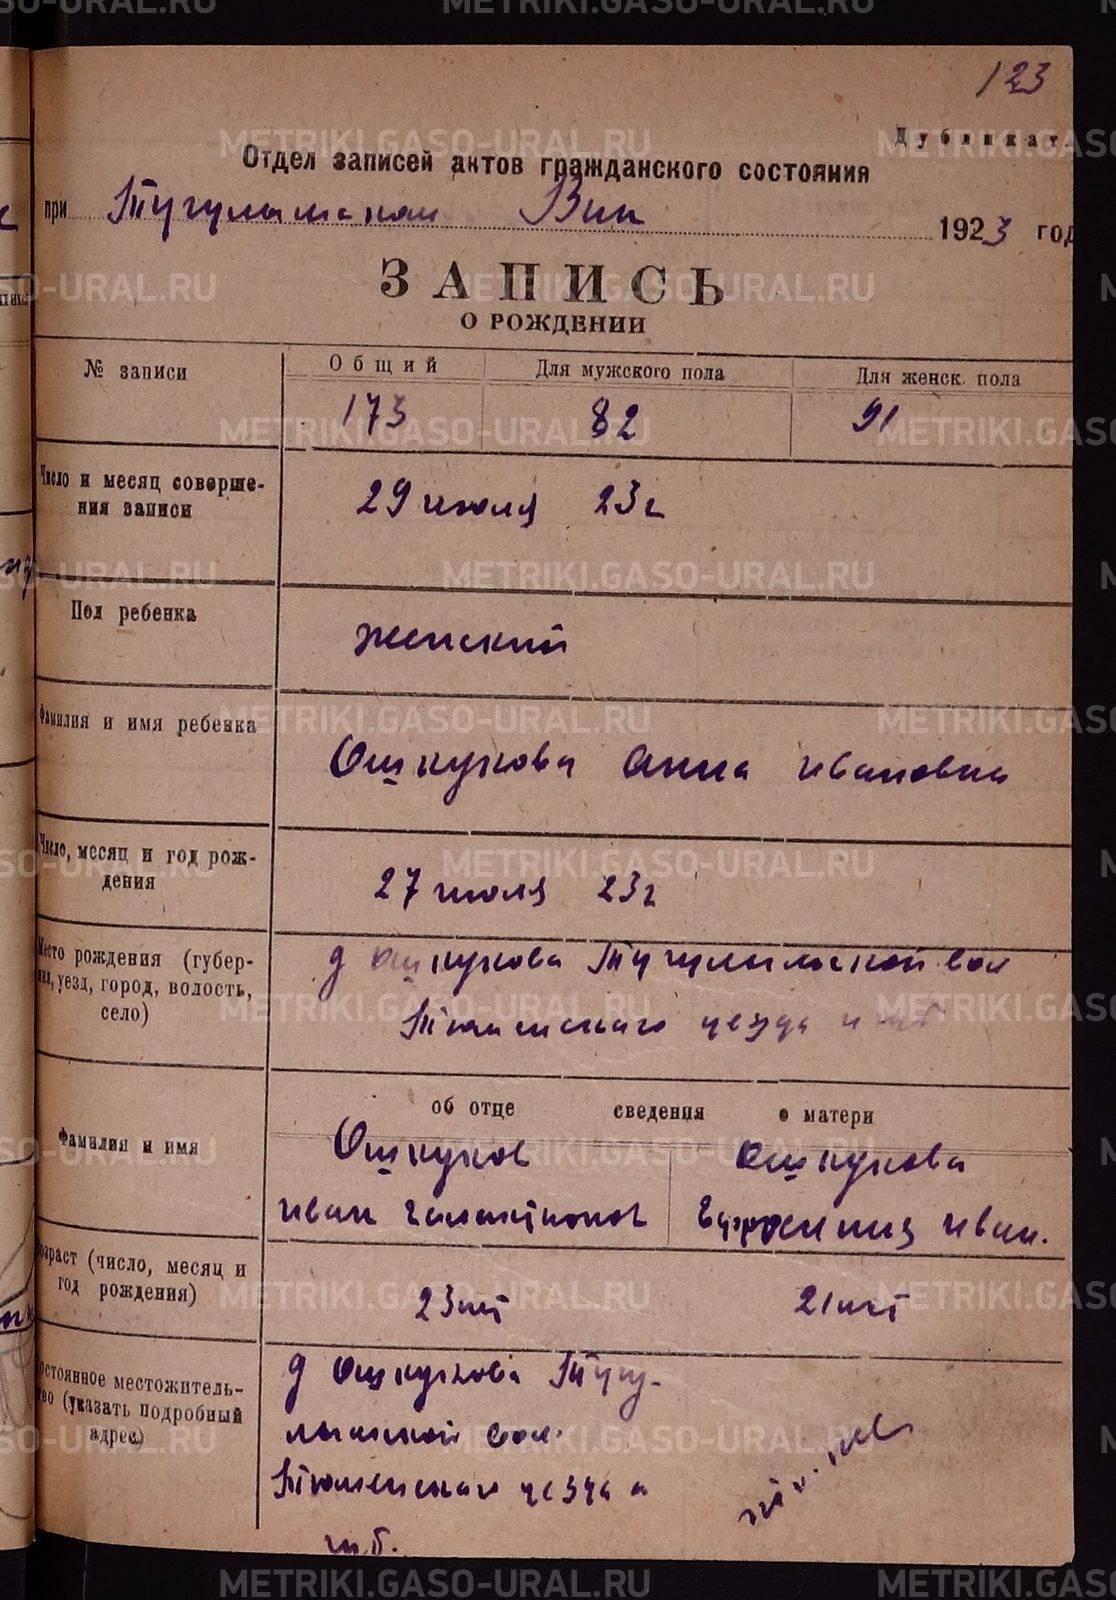 123
Дубликат
Отдел записей актов гражданского состояния
при Тугулымском Вик 1923 год
ЗАПИСЬ
О РОЖДЕНИИ
№ записи Общий Для мужского пола Для женск. пола
173 82 91
Число и месяц соверше-
ния записи
29 июля 23г
Пол ребенка
женский
Фамилия и имя ребенка
Ошкукова Анна Ивановна
Число, месяц и год рож-
дения
27 июля 23г
Место рождения (губер-
ния, уезд, город, волость,
село)
д Ошкукова Тугулымской вол
Тюменского уезда и губ
об отце сведения о матери
Фамилия и имя
Ошкуков Ошкукова
Иван Галактионов Ефросиния Иван.
Возраст (число, месяц и
год рождения)
23 лет 21 лет
Постоянное местожитель-
ство (указать подробный
адрес)
д Ошкукова Тугу-
лымской вол.
Тюменскаго уезда и
губ.
METRIKI.GASO-URAL.RU